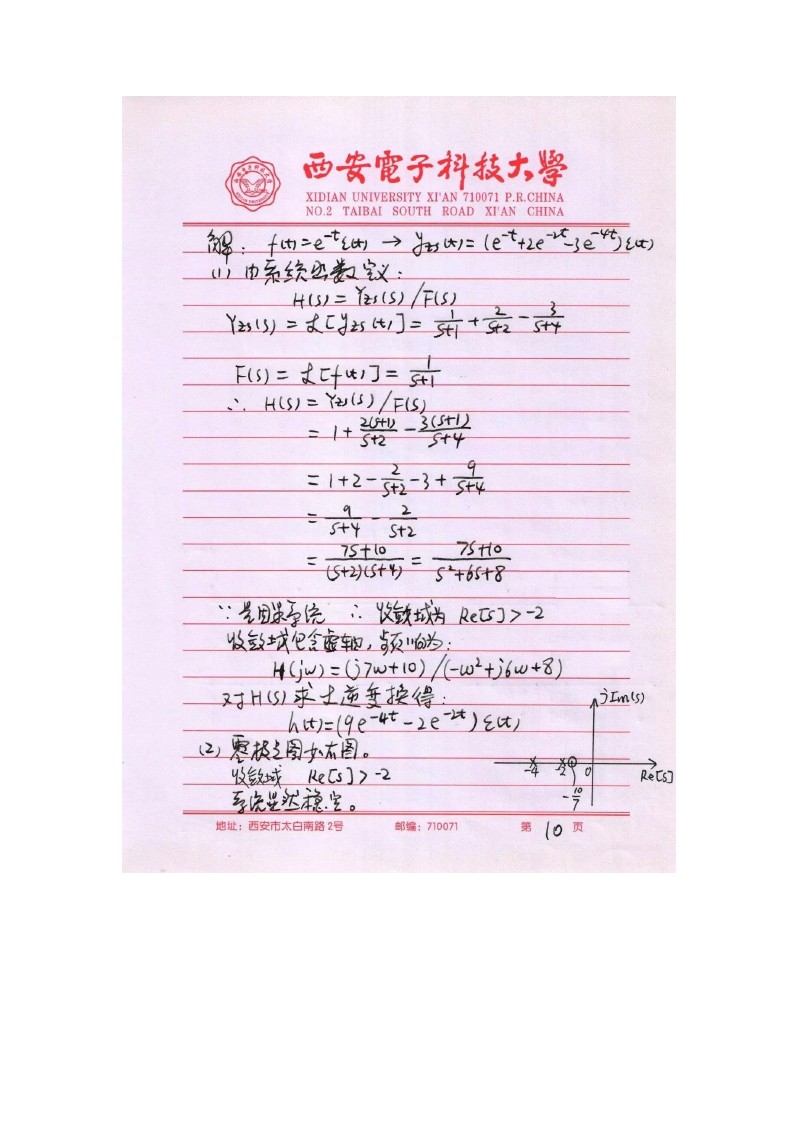 西安電子科技大學
XIDIAN UNIVERSITY XI'AN 710071 P.R.CHINA
NO.2 TAIBAI SOUTH ROAD XI'AN CHINA
解: f(t)=e^{-t}ε(t) → y_{zs}(t)=(e^{-t}+2e^{-2t}-3e^{-4t})ε(t)
(1) 由系统函数定义:
H(s)=Y_{zs}(s)/F(s)
Y_{zs}(s)=ℒ[y_{zs}(t)]=1/(s+1)+2/(s+2)-3/(s+4)
F(s)=ℒ[f(t)]=1/(s+1)
∴ H(s)=Y_{zs}(s)/F(s)
=1+2(s+1)/(s+2)-3(s+1)/(s+4)
=1+2-2/(s+2)-3+9/(s+4)
=9/(s+4)-2/(s+2)
=(7s+10)/((s+2)(s+4))=(7s+10)/(s²+6s+8)
∵是因果系统 ∴ 收敛域为 Re[s]>-2
收敛域包含虚轴,频响为:
H(jw)=(j7w+10)/(-w²+j6w+8)
对H(s)求ℒ逆变换得:
h(t)=(9e^{-4t}-2e^{-2t})ε(t)
(2) 零极点图如右图。
收敛域 Re[s]>-2
系统显然稳定。
jIm(s)
-4 -2 0 Re[s]
-10/7
地址:西安市太白南路2号 邮编:710071 第 10 页